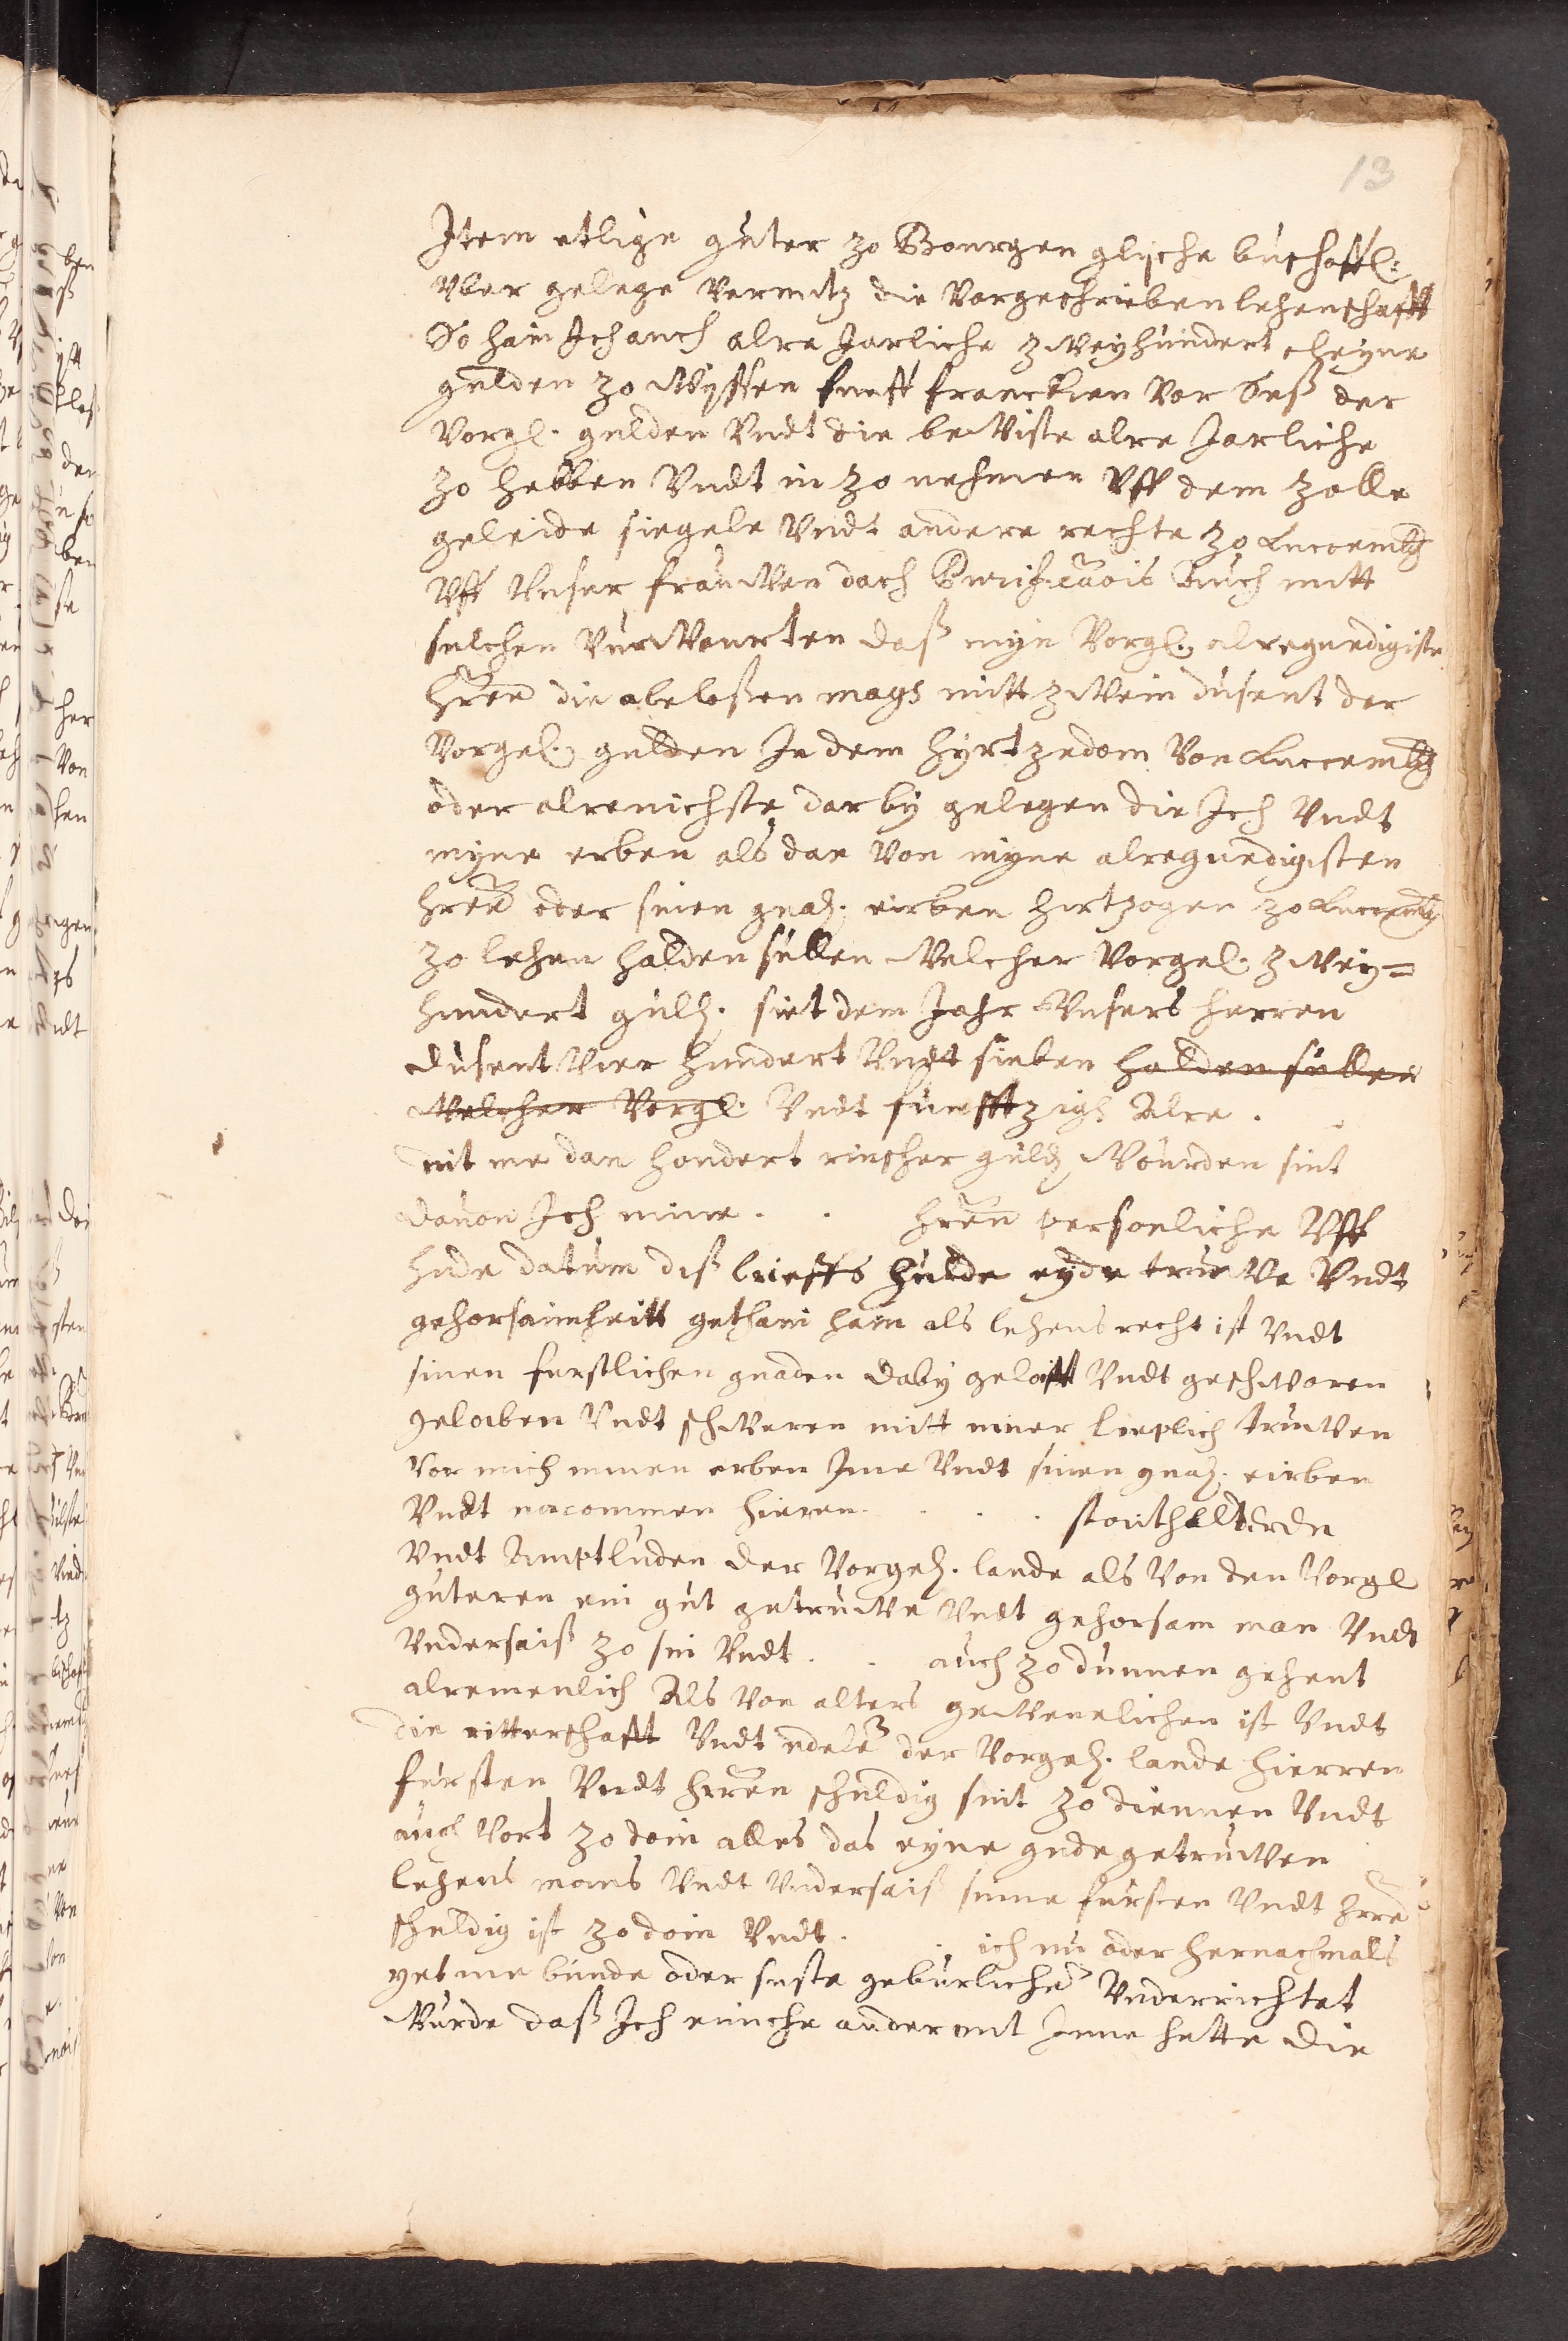 13
Item etlige guter zo Bourgen glyche buschoffl:
Vber gelege Vermitz die Vorgeschrieben lehenschafft
So hain Ich auch alre Jarliche zweyhundert rheyne
gulden zo Wyssen funff franckien Vor seß der
Vorgl. gulden Vndt die beWiste alre Jarliche
zo hebben Vndt in zo nehmen Vff dem Zolle
geleide siegele Vndt andere rechte zo Luccembg
Vff Vnser frauWen dach Purif. mitt
sulchen VurWourten daß myn Vorgl. alregnedigiste
hren die abeloßen mags mitt zWein dusent der
Vorgel. gulden In dem hyrtzedom Von Luccembg
oder alrenichste darby gelegen die Ich Vndt
myne erben als dan Von myne alregnedigisten
hren oder sinen gnad. eirben hertzogen zo Luccembg
zo lehen halden sullen Welcher Vorgel. zWey=
hundert guld. siet dem Jahr Vnsers herren
dusent Vier hundert Vndt sieben halden sullen
Welcher Vorgl. Vndt funfftzigh Alre.
nit me dan hondert rinscher guld Wourden sint
dauon Ich mine . . hren personliche Vff
hude datum diß brieffs hulde eyde truWe Vndt
gehorsamheitt gethain hain als lehens recht ist Vndt
sinen furstlichen gnaden daby geloifft Vndt geschWoren
geloben Vndt schWeren mitt miner lieplich truWen
Vor mich minen erben Ime Vndt sinen gnad. eirben
Vndt nacommen hieren . . . stouthelderde
Vndt Amptluden der Vorgeh. lande als Von den Vorgl
guteren ein gut getruWe Vndt gehorsam man Vndt
Vndersaiß zo sin Vndt . . auch zo dunnen gehent
alremenlich Als Von alters geWenelichen ist Vndt
die ritterschafft Vndt edele der Vorgeh. lande hierren
fursten Vndt hrren schuldig sint zo diennen Vndt
auch Vort zo doin alles das eyne gude getruWen
lehens mans Vndt Vndersaiß sinne fursten Vndt hrre
schuldig ist zo doin Vndt . . ich nu oder hernachmals
yet me bunde oder suste geburliche Vnderrichtet
Wurde daß Ich einche ander Inne hette die